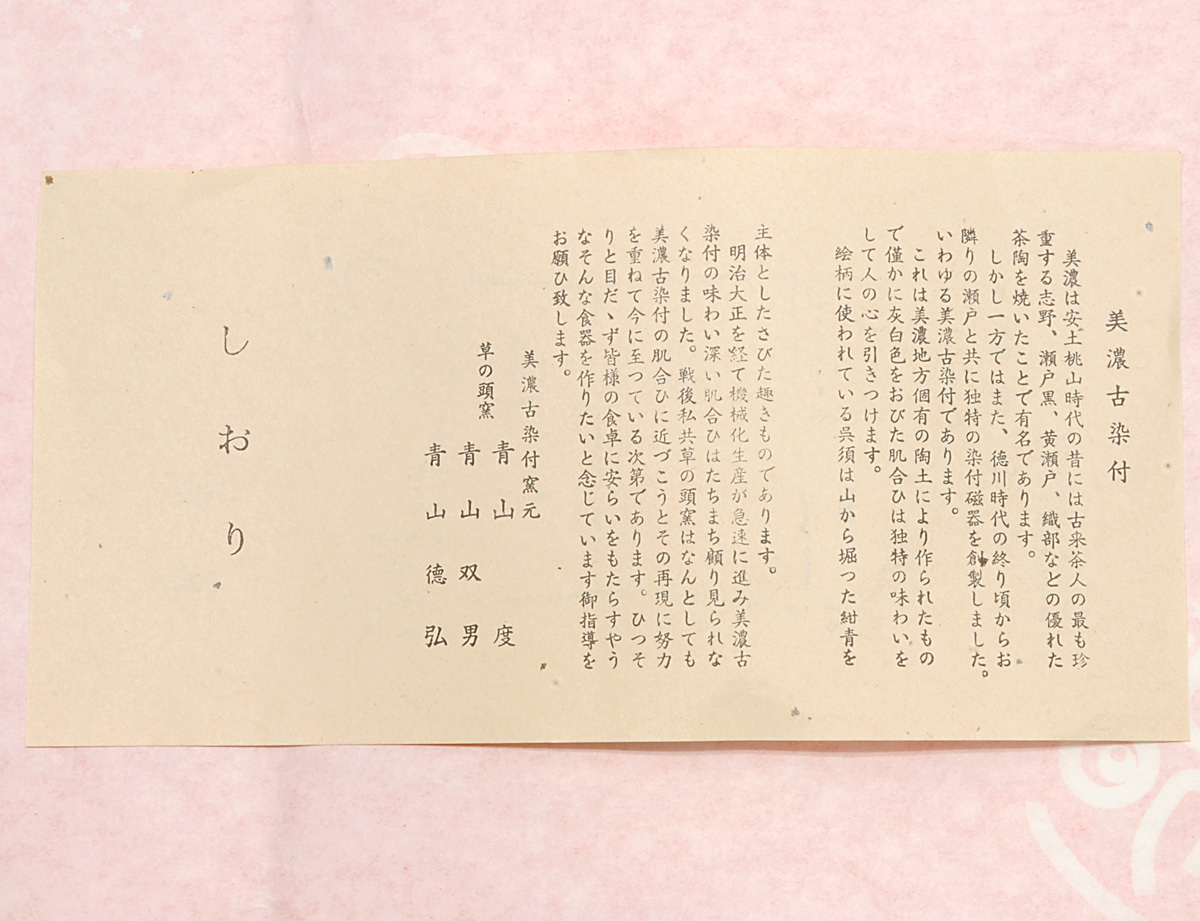 美濃古染付
美濃は安土桃山時代の昔には古来茶人の最も珍
重する志野、瀬戸黒、黄瀬戸、織部などの優れた
茶陶を焼いたことで有名であります。
しかし一方ではまた、徳川時代の終り頃からお
隣りの瀬戸と共に独特の染付磁器を創製しました。
いわゆる美濃古染付であります。
これは美濃地方個有の陶土により作られたもの
で僅かに灰白色をおびた肌合ひは独特の味わいを
して人の心を引きつけます。
絵柄に使われている呉須は山から堀つた紺青を
主体としたさびた趣きものであります。
明治大正を経て機械化生産が急速に進み美濃古
染付の味わい深い肌合ひはたちまち顧り見られな
くなりました。戦後私共草の頭窯はなんとしても
美濃古染付の肌合ひに近づこうとその再現に努力
を重ねて今に至つている次第であります。ひつそ
りと目だゝず皆様の食卓に安らいをもたらすやう
なそんな食器を作りたいと念じています御指導を
お願ひ致します。
美濃古染付窯元
草の頭窯
青山 度
青山双男
青山徳弘
しおり